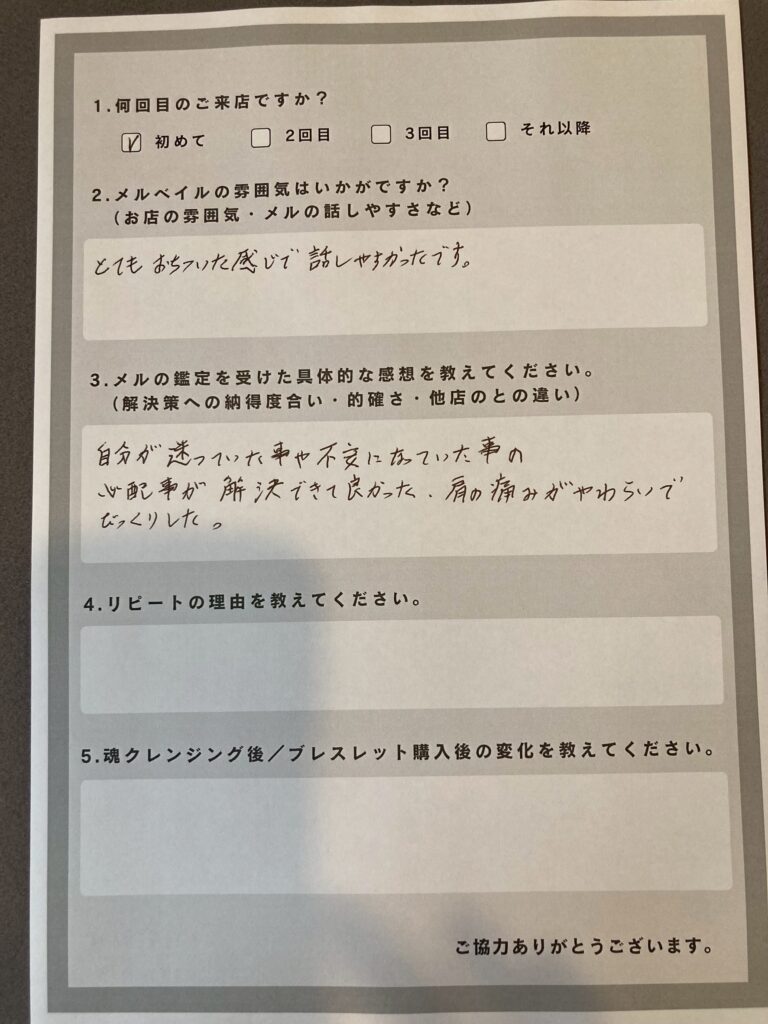 1.何回目のご来店ですか？
初めて 2回目 3回目 それ以降
2.メルベイルの雰囲気はいかがですか？
（お店の雰囲気・メルの話しやすさなど）
とても おちついた感じで 話しやすかったです。
3.メルの鑑定を受けた具体的な感想を教えてください。
（解決策への納得度合い・的確さ・他店のとの違い）
自分が 迷っていた事や不安になっていた事の
心配事が 解決できて良かった．肩の痛みがやわらいで
びっくりした。
4.リピートの理由を教えてください。
5.魂クレンジング後／ブレスレット購入後の変化を教えてください。
ご協力ありがとうございます。